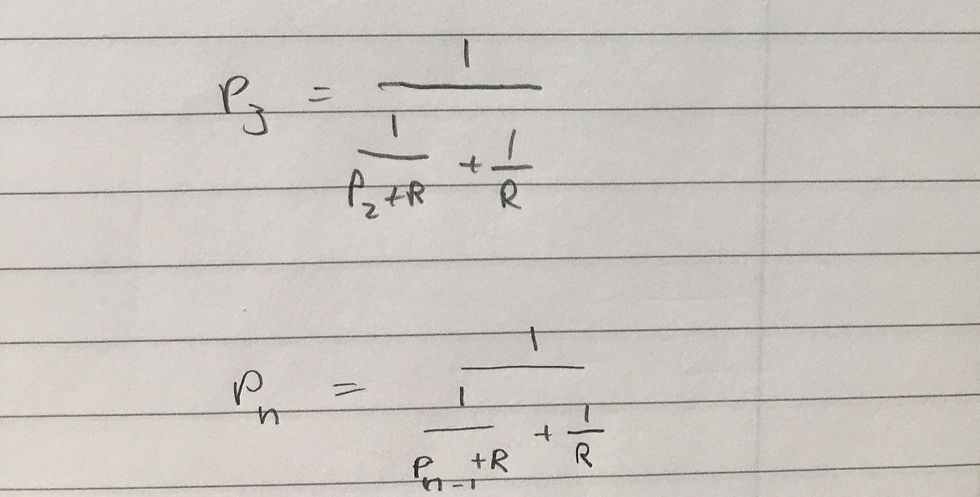 P₃ = 1 / (1/(P₂+R) + 1/R)
Pₙ = 1 / (1/(Pₙ₋₁+R) + 1/R)